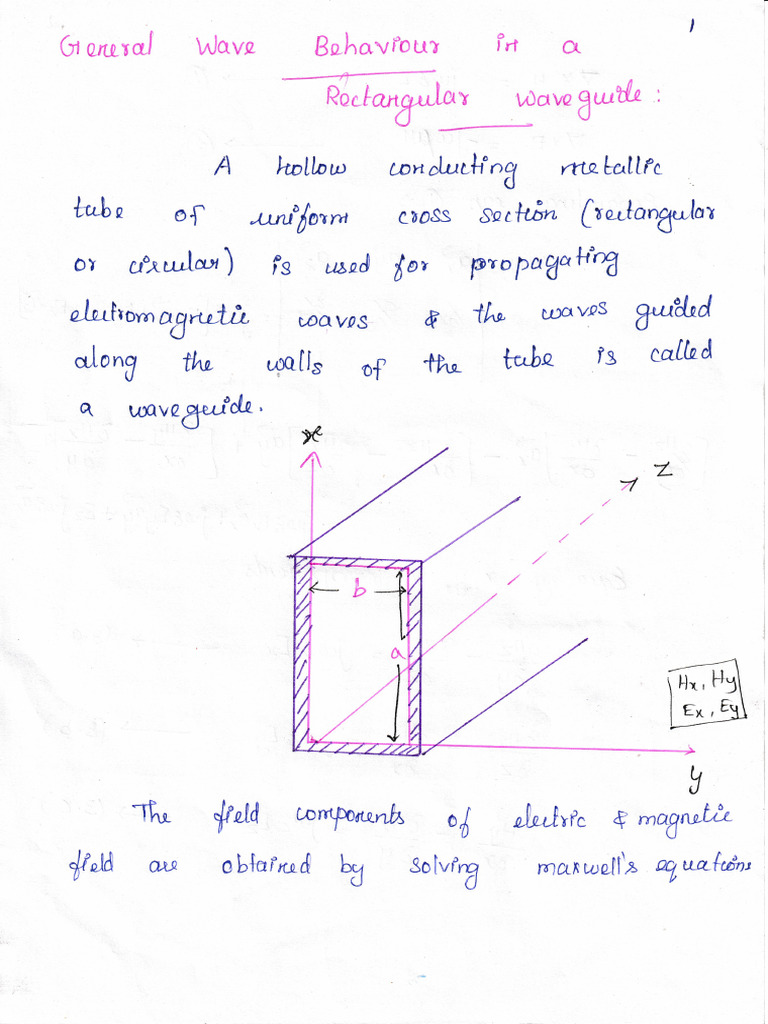 1
General Wave Behaviour in a
Rectangular waveguide:
A hollow conducting metallic
tube of uniform cross section (rectangular
or circular) is used for propagating
electromagnetic waves & the waves guided
along the walls of the tube is called
a waveguide.
x
z
b
a
Hx, Hy
Ex, Ey
y
The field components of electric & magnetic
field are obtained by solving maxwell's equations